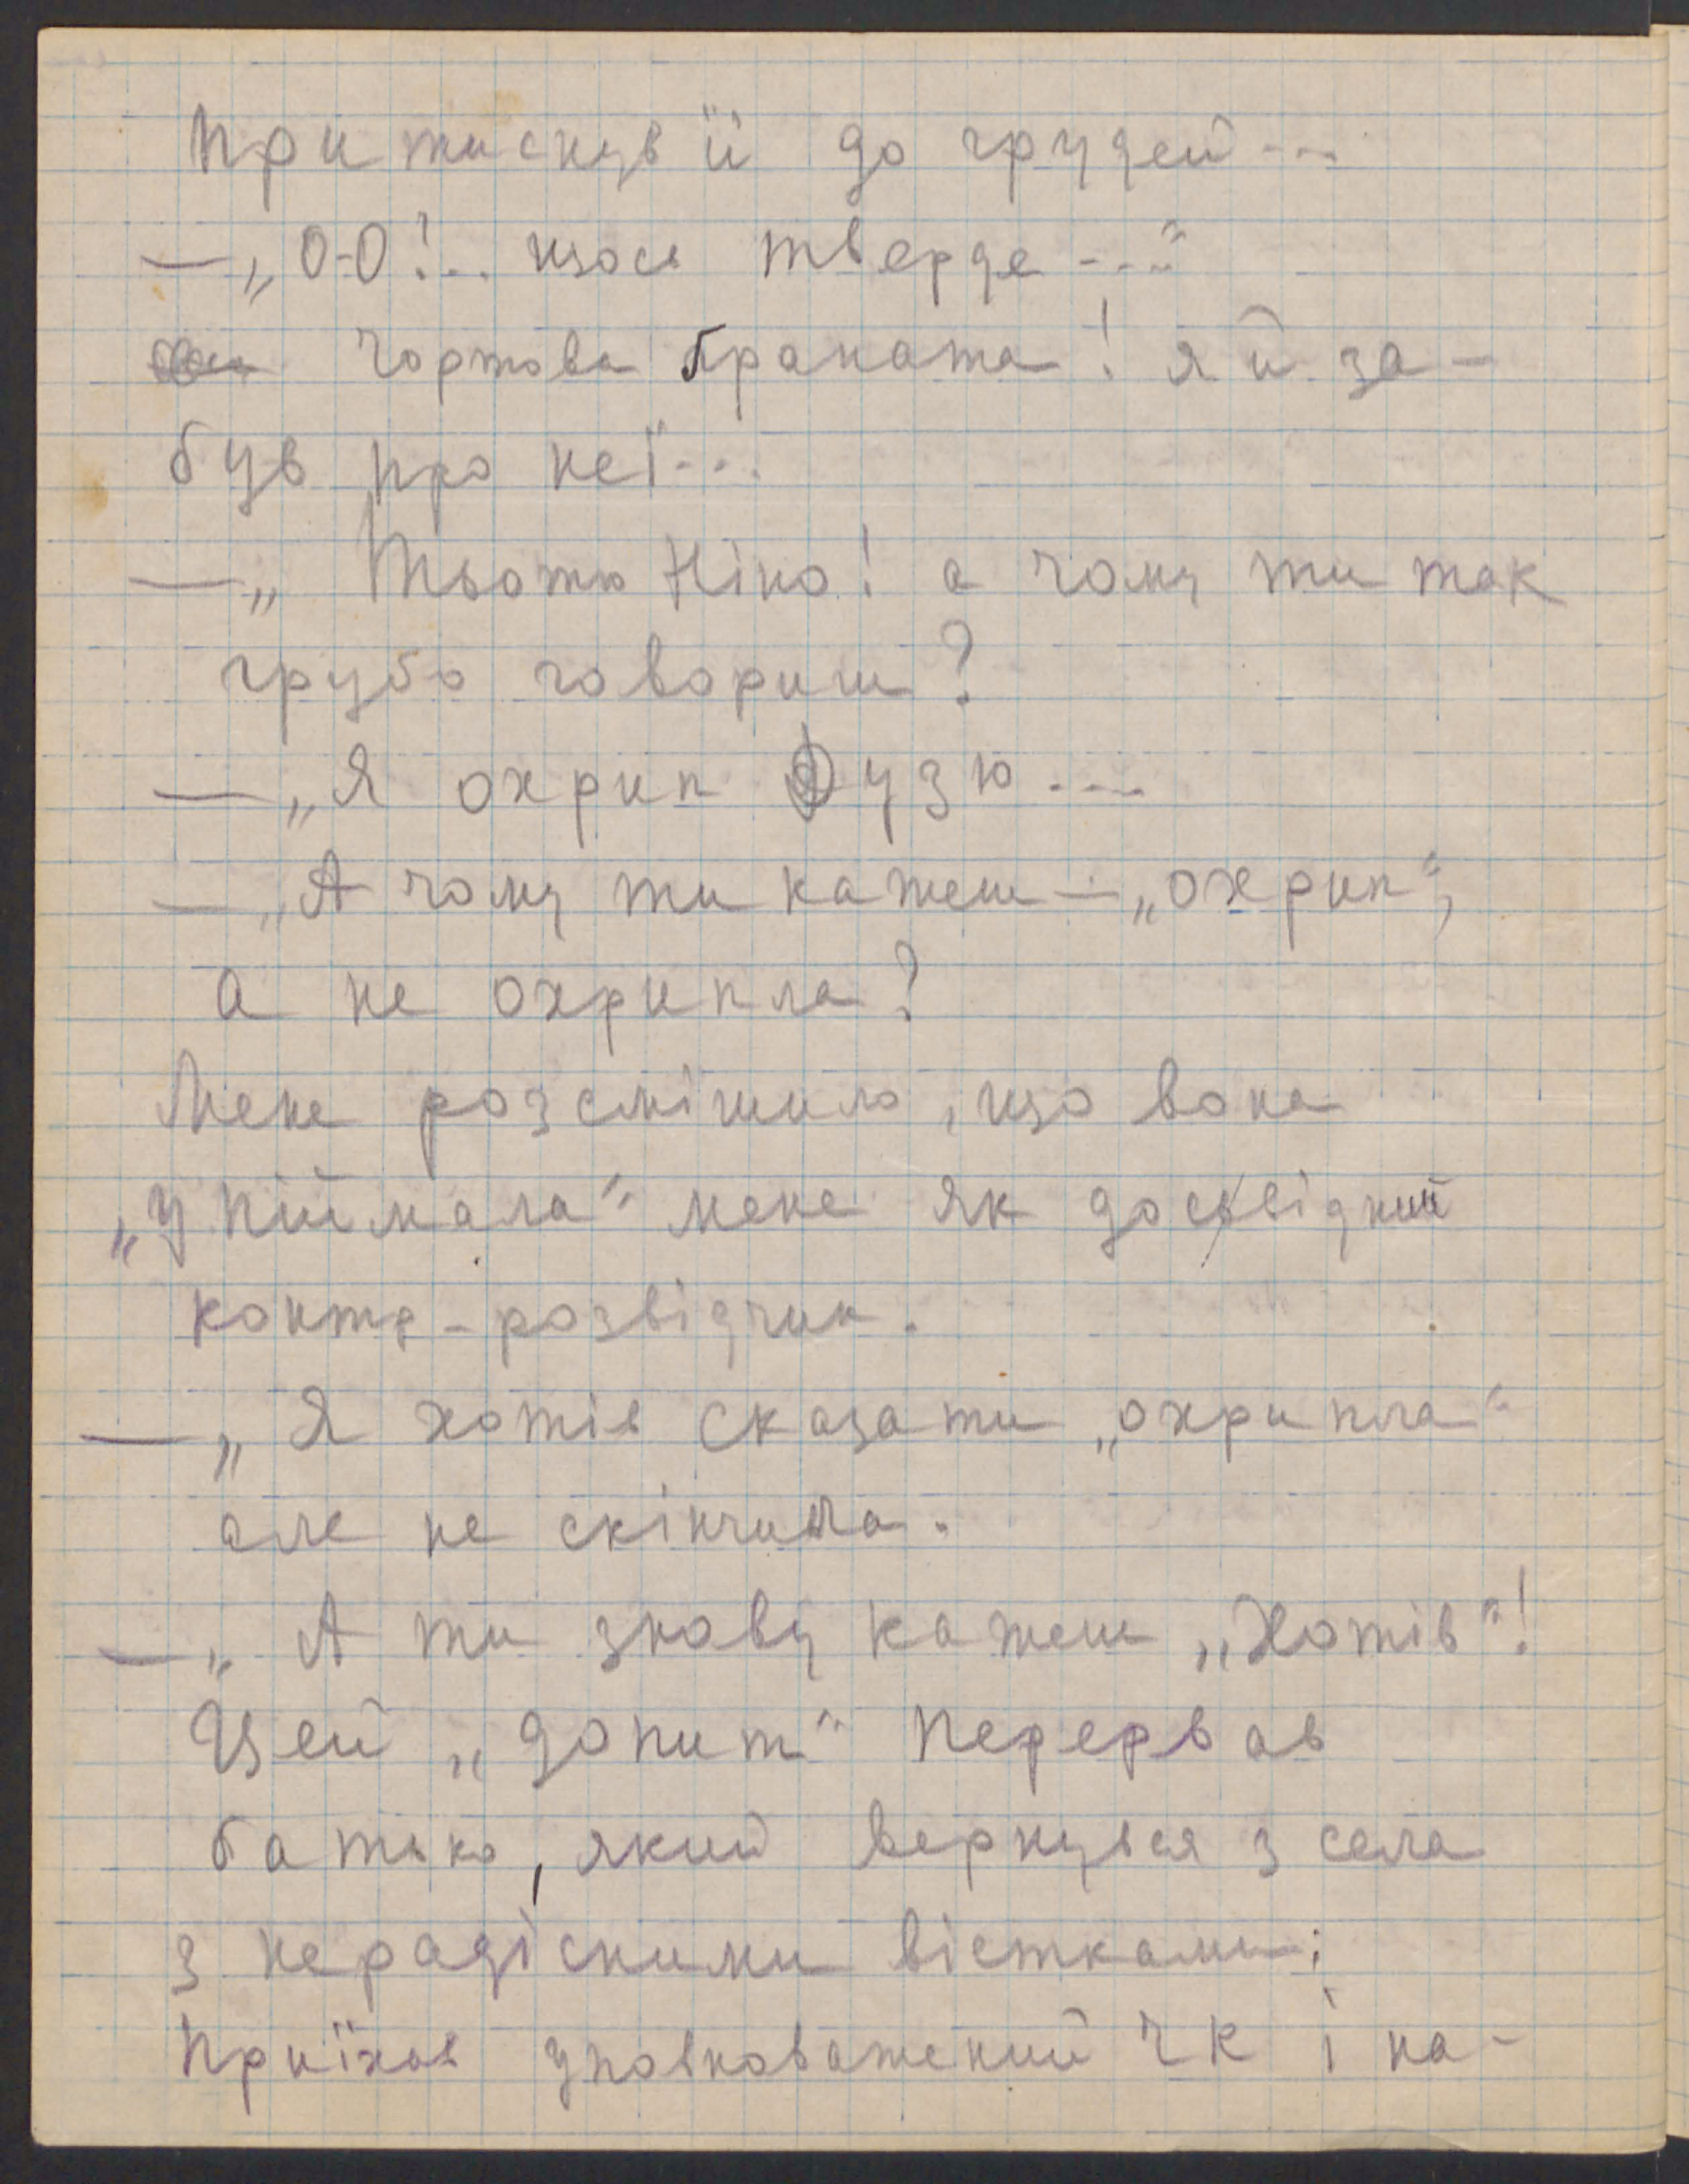 притиснув її до грудей...
— „О-О!.. щось тверде..."
Чортова ґраната! я й за-
був про неї...
— „Тьотю Ніно! а чому ти так
грубо говориш?
— „Я охрип Дузю...
— „А чому ти кажеш — „охрип",
а не охрипла?
Мене розсмішило, що вона
„упіймала" мене як досвідний
контр-розвідчик.
— „Я хотів сказати „охрипла"
але не скінчила.
— „А ти знову кажеш „Хотів"!
Цей „допит" перервав
батько, який вернувся з села
з нерадісними вістками:
приїхав уповноважений ЧК і на-